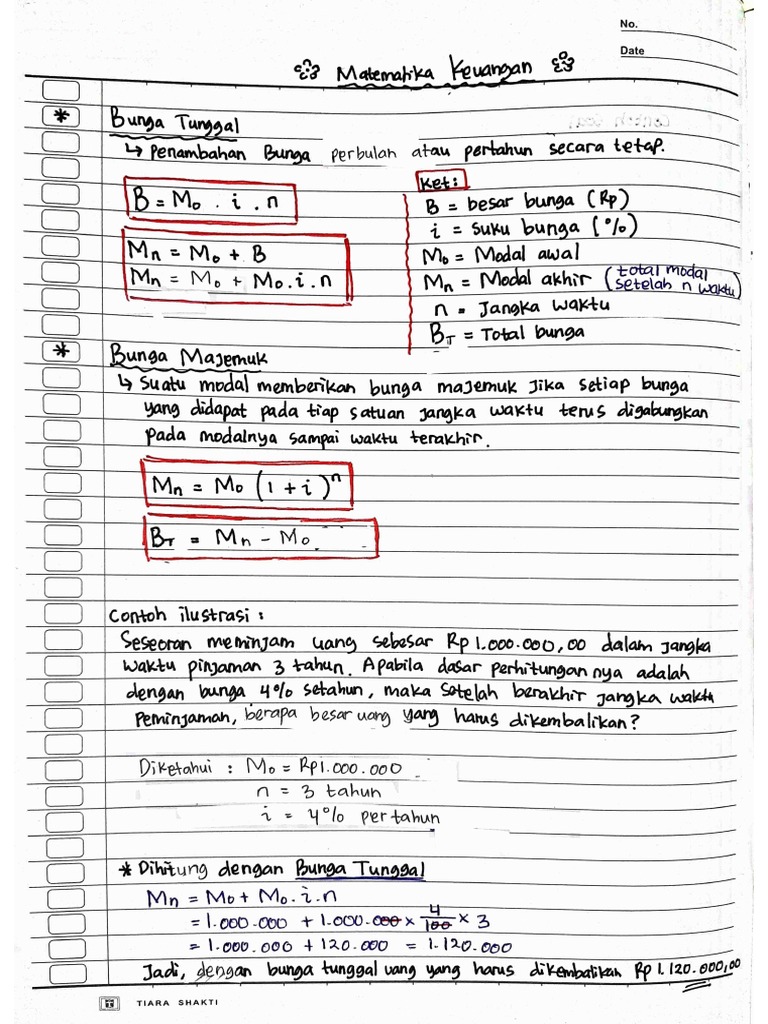 No.
Date
Matematika Keuangan
* Bunga Tunggal
↳ Penambahan Bunga perbulan atau pertahun secara tetap.
B = M₀ . i . n
Mn = M₀ + B
Mn = M₀ + M₀.i.n
Ket:
B = besar bunga (Rp)
i = suku bunga (%)
M₀ = Modal awal
Mn = Modal akhir (total modal setelah n waktu)
n = Jangka waktu
B_T = Total bunga
* Bunga Majemuk
↳ Suatu modal memberikan bunga majemuk jika setiap bunga
yang didapat pada tiap satuan jangka waktu terus digabungkan
pada modalnya sampai waktu terakhir.
Mn = M₀ (1 + i)ⁿ
B_T = Mn - M₀
Contoh ilustrasi :
Seseoran meminjam uang sebesar Rp 1.000.000,00 dalam jangka
waktu pinjaman 3 tahun. Apabila dasar perhitungannya adalah
dengan bunga 4% setahun, maka setelah berakhir jangka waktu
Peminjaman, berapa besar uang yang harus dikembalikan?
Diketahui : M₀ = Rp1.000.000
n = 3 tahun
i = 4% per tahun
* Dihitung dengan Bunga Tunggal
Mn = M₀ + M₀.i.n
= 1.000.000 + 1.000.000 × 4/100 × 3
= 1.000.000 + 120.000 = 1.120.000
Jadi, dengan bunga tunggal uang yang harus dikembalikan Rp 1.120.000,00
TIARA SHAKTI